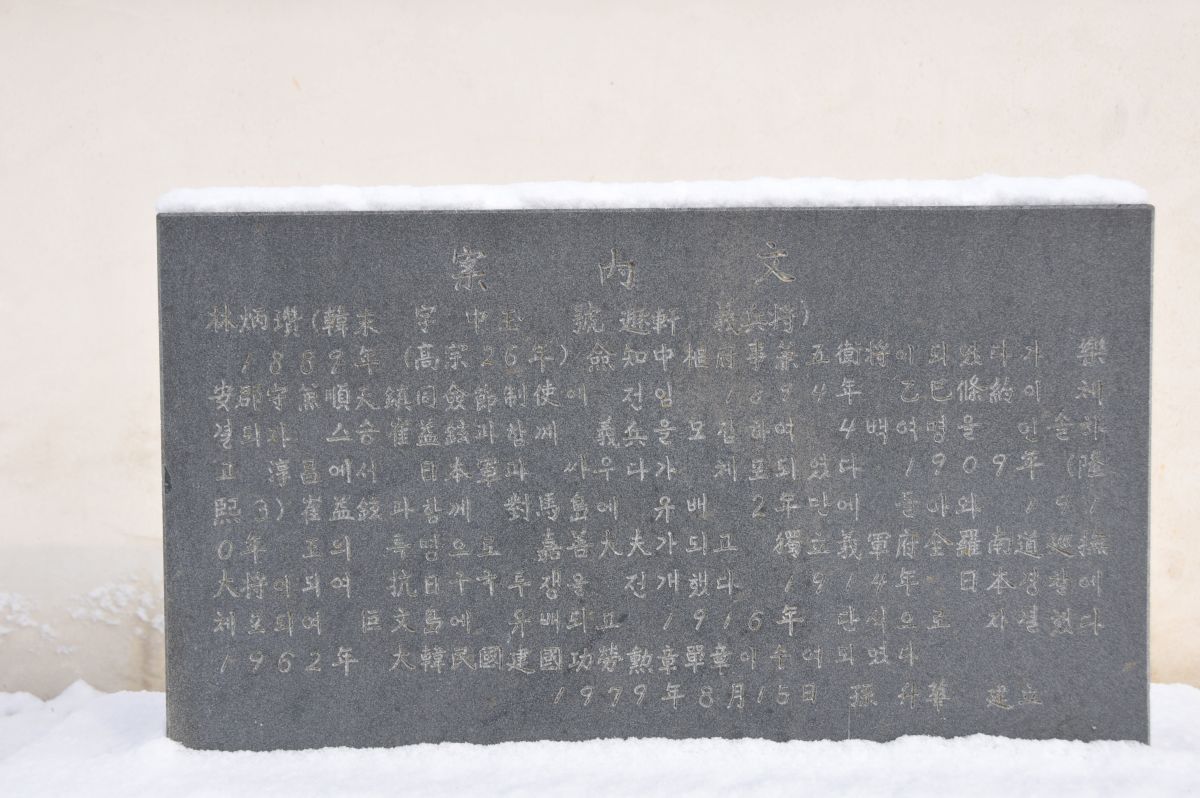 案 內 文
林炳瓚(韓末 字 中玉 號 遯軒 義兵將)
1889年 (高宗26年) 僉知中樞府事兼五衛將이되었다가 樂
安郡守兼順天鎭同僉節制使에 전임 1894年 乙巳條約이 체
결되자 스승崔益鉉과함께 義兵을모집하여 4백여명을 인솔하
고 淳昌에서 日本軍과 싸우다가 체포되었다 1909年 (隆
熙3) 崔益鉉과함께 對馬島에유배 2年만에 돌아와 191
0年 고의 특명으로 嘉善大夫가되고 獨立義軍府全羅南道巡撫
大將이되여 抗日구국투쟁을 전개했다 1914年 日本경찰에
체포되여 巨文島에유배되고 1916年 단식으로 자결했다
1962年 大韓民國建國功勞勳章單章이수여되었다
1979年8月15日 孫 建立